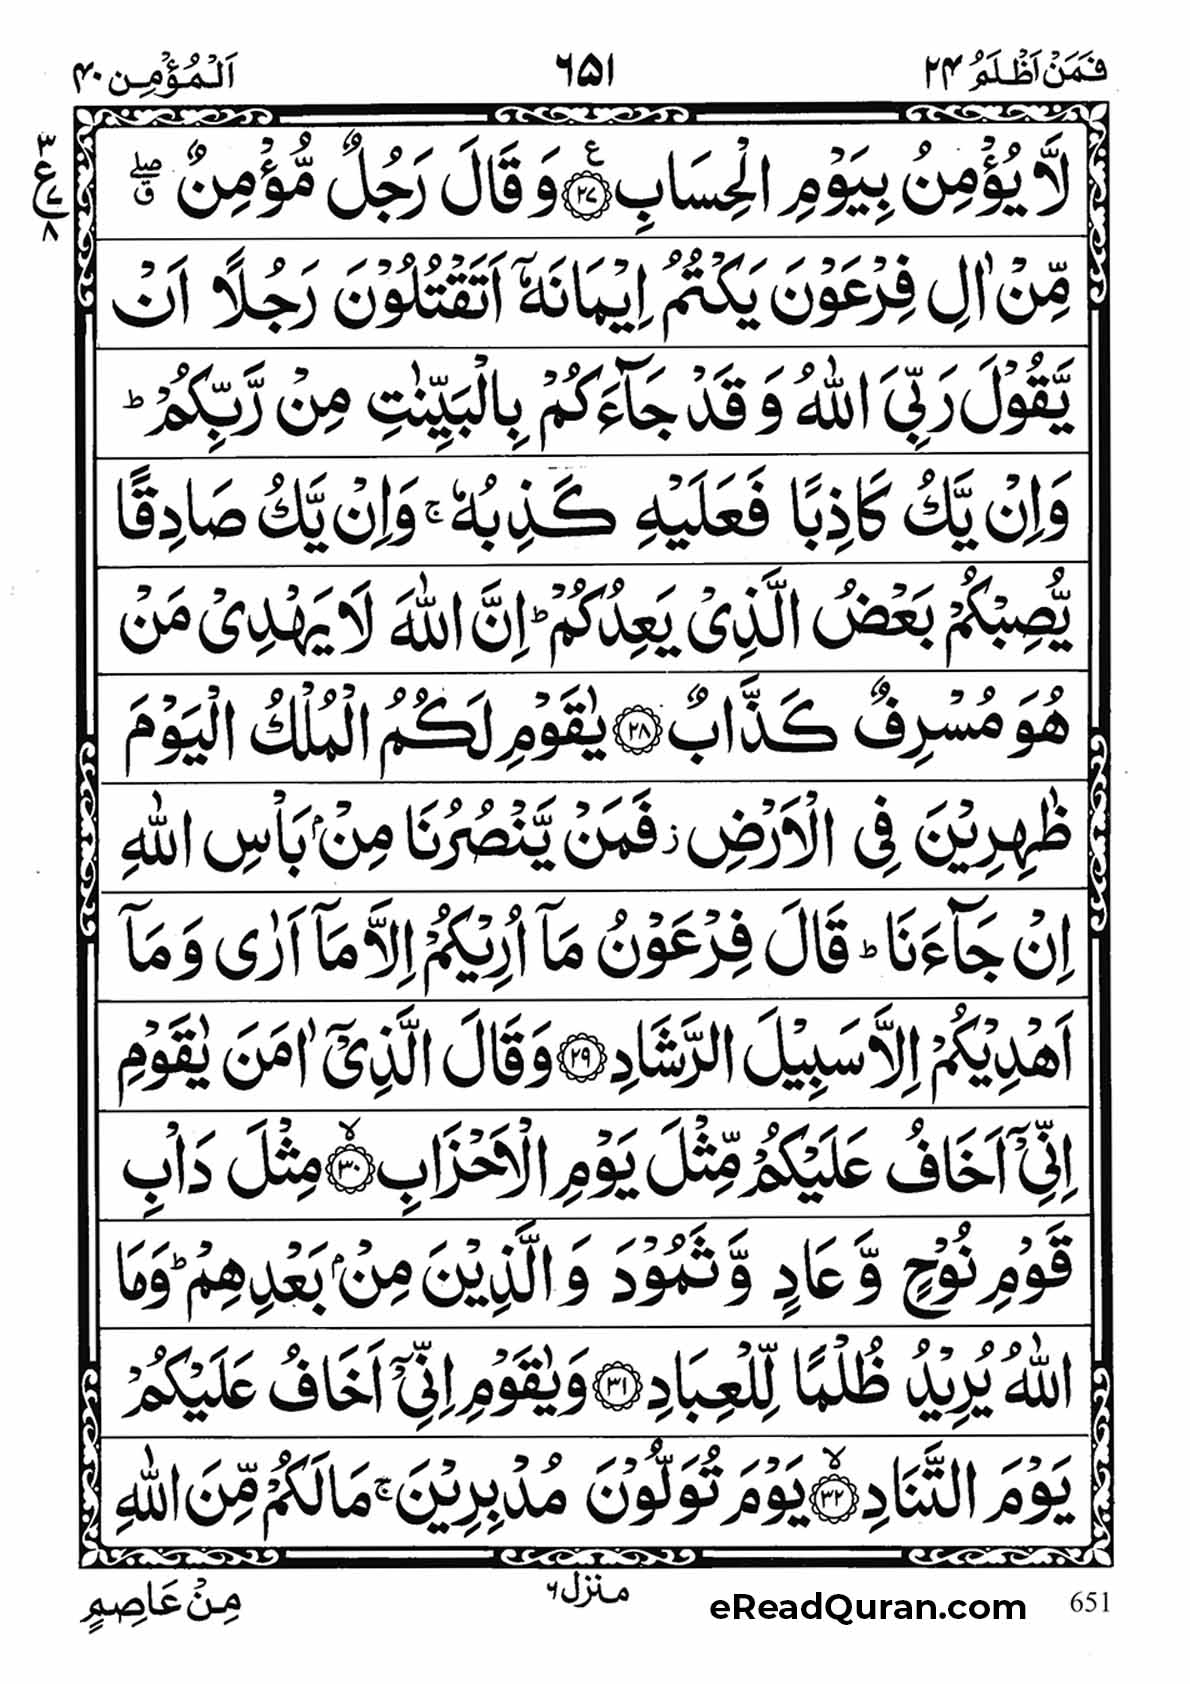 فَمَنْ اَظْلَمُ ۲۴ ۶۵۱ اَلْمُؤْمِن ۴۰
لَّا يُؤْمِنُ بِيَوْمِ الْحِسَابِ ﴿۲۷﴾ ع وَ قَالَ رَجُلٌ مُّؤْمِنٌ ۖ ق
۳ ع ۷ ۸
مِّنْ اٰلِ فِرْعَوْنَ يَكْتُمُ اِيْمَانَهٗۤ اَتَقْتُلُوْنَ رَجُلًا اَنْ
يَّقُوْلَ رَبِّيَ اللّٰهُ وَ قَدْ جَآءَكُمْ بِالْبَيِّنٰتِ مِنْ رَّبِّكُمْ ؕ
وَاِنْ يَّكُ كَاذِبًا فَعَلَيْهِ كَذِبُهٗ ۚ وَاِنْ يَّكُ صَادِقًا
يُّصِبْكُمْ بَعْضُ الَّذِىْ يَعِدُكُمْ ؕ اِنَّ اللّٰهَ لَا يَهْدِىْ مَنْ
هُوَ مُسْرِفٌ كَذَّابٌ ﴿۲۸﴾ يٰقَوْمِ لَكُمُ الْمُلْكُ الْيَوْمَ
ظٰهِرِيْنَ فِى الْاَرْضِ ز فَمَنْ يَّنْصُرُنَا مِنْۢ بَاْسِ اللّٰهِ
اِنْ جَآءَنَا ؕ قَالَ فِرْعَوْنُ مَاۤ اُرِيْكُمْ اِلَّا مَاۤ اَرٰى وَ مَاۤ
اَهْدِيْكُمْ اِلَّا سَبِيْلَ الرَّشَادِ ﴿۲۹﴾ وَقَالَ الَّذِىْۤ اٰمَنَ يٰقَوْمِ
اِنِّىْۤ اَخَافُ عَلَيْكُمْ مِّثْلَ يَوْمِ الْاَحْزَابِ ﴿۳۰﴾ ۙ مِثْلَ دَاْبِ
قَوْمِ نُوْحٍ وَّ عَادٍ وَّ ثَمُوْدَ وَ الَّذِيْنَ مِنْۢ بَعْدِهِمْ ؕ وَمَا
اللّٰهُ يُرِيْدُ ظُلْمًا لِّلْعِبَادِ ﴿۳۱﴾ وَيٰقَوْمِ اِنِّىْۤ اَخَافُ عَلَيْكُمْ
يَوْمَ التَّنَادِ ﴿۳۲﴾ ۙ يَوْمَ تُوَلُّوْنَ مُدْبِرِيْنَ ۚ مَا لَكُمْ مِّنَ اللّٰهِ
مِنْ عَاصِمٍ منزل ۶ eReadQuran.com 651